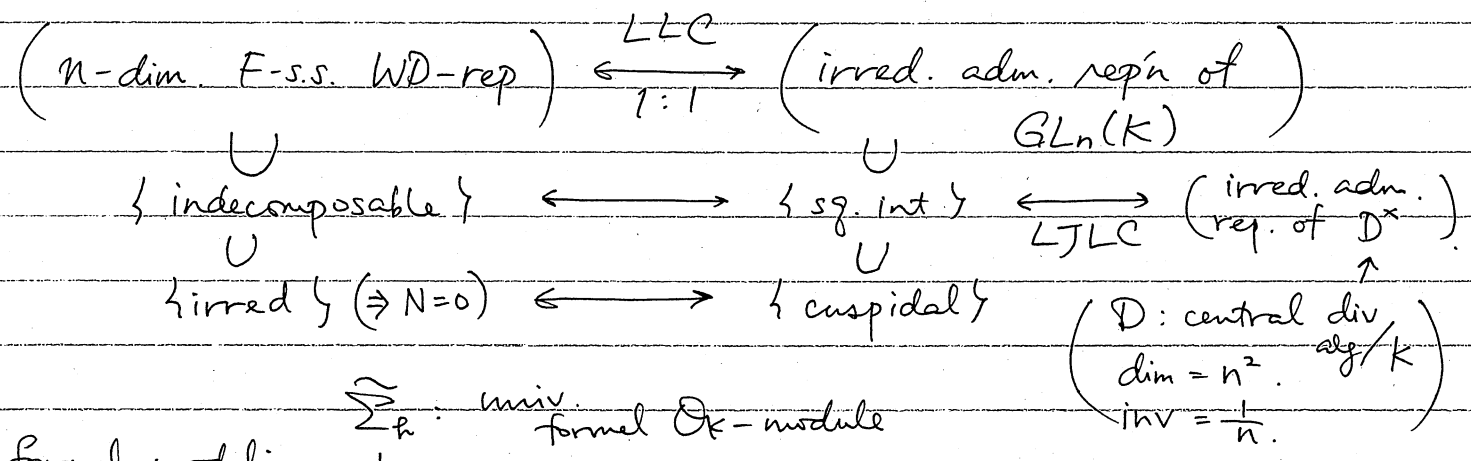 ( n-dim. F-s.s. WD-rep ) ⟷ LLC 1:1 ( irred. adm. rep'n of GLn(K) )
∪ ∪
{ indecomposable } ⟷ { sq. int } ⟷ LJLC ( irred. adm. rep. of D^× ).
∪ ∪ ↑
{ irred } (⇒ N=0) ⟷ { cuspidal } ( D : central div. alg/K
dim = n².
inv = 1/n. )
Σ̃_h : univ. formal O_K-module